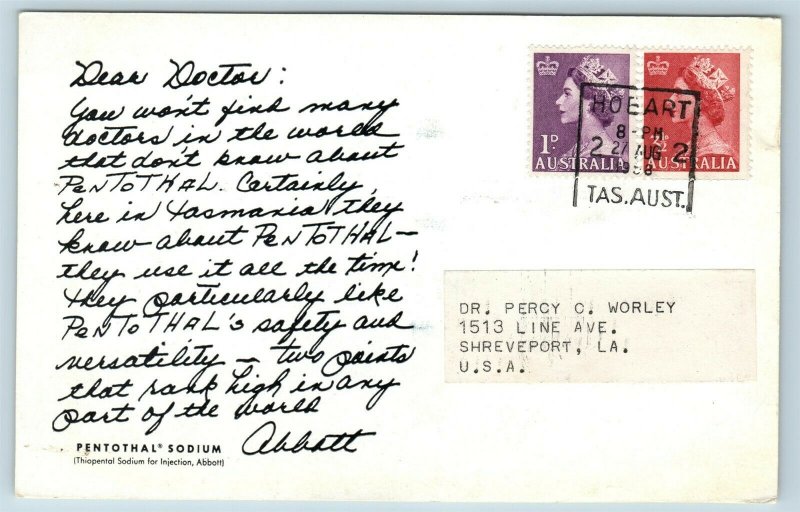 Dear Doctor:
You won't find many
doctors in the world
that don't know about
PENTOTHAL. Certainly,
here in Tasmania they
know about PENTOTHAL—
they use it all the time!
They particularly like
PENTOTHAL'S safety and
versatility — two points
that rank high in any
part of the world
Abbott
PENTOTHAL® SODIUM
(Thiopental Sodium for Injection, Abbott)
1D
AUSTRALIA
AUSTRALIA
HOBART
8-PM
2 AUG 2
TAS.AUST.
DR. PERCY C. WORLEY
1513 LINE AVE.
SHREVEPORT, LA.
U.S.A.